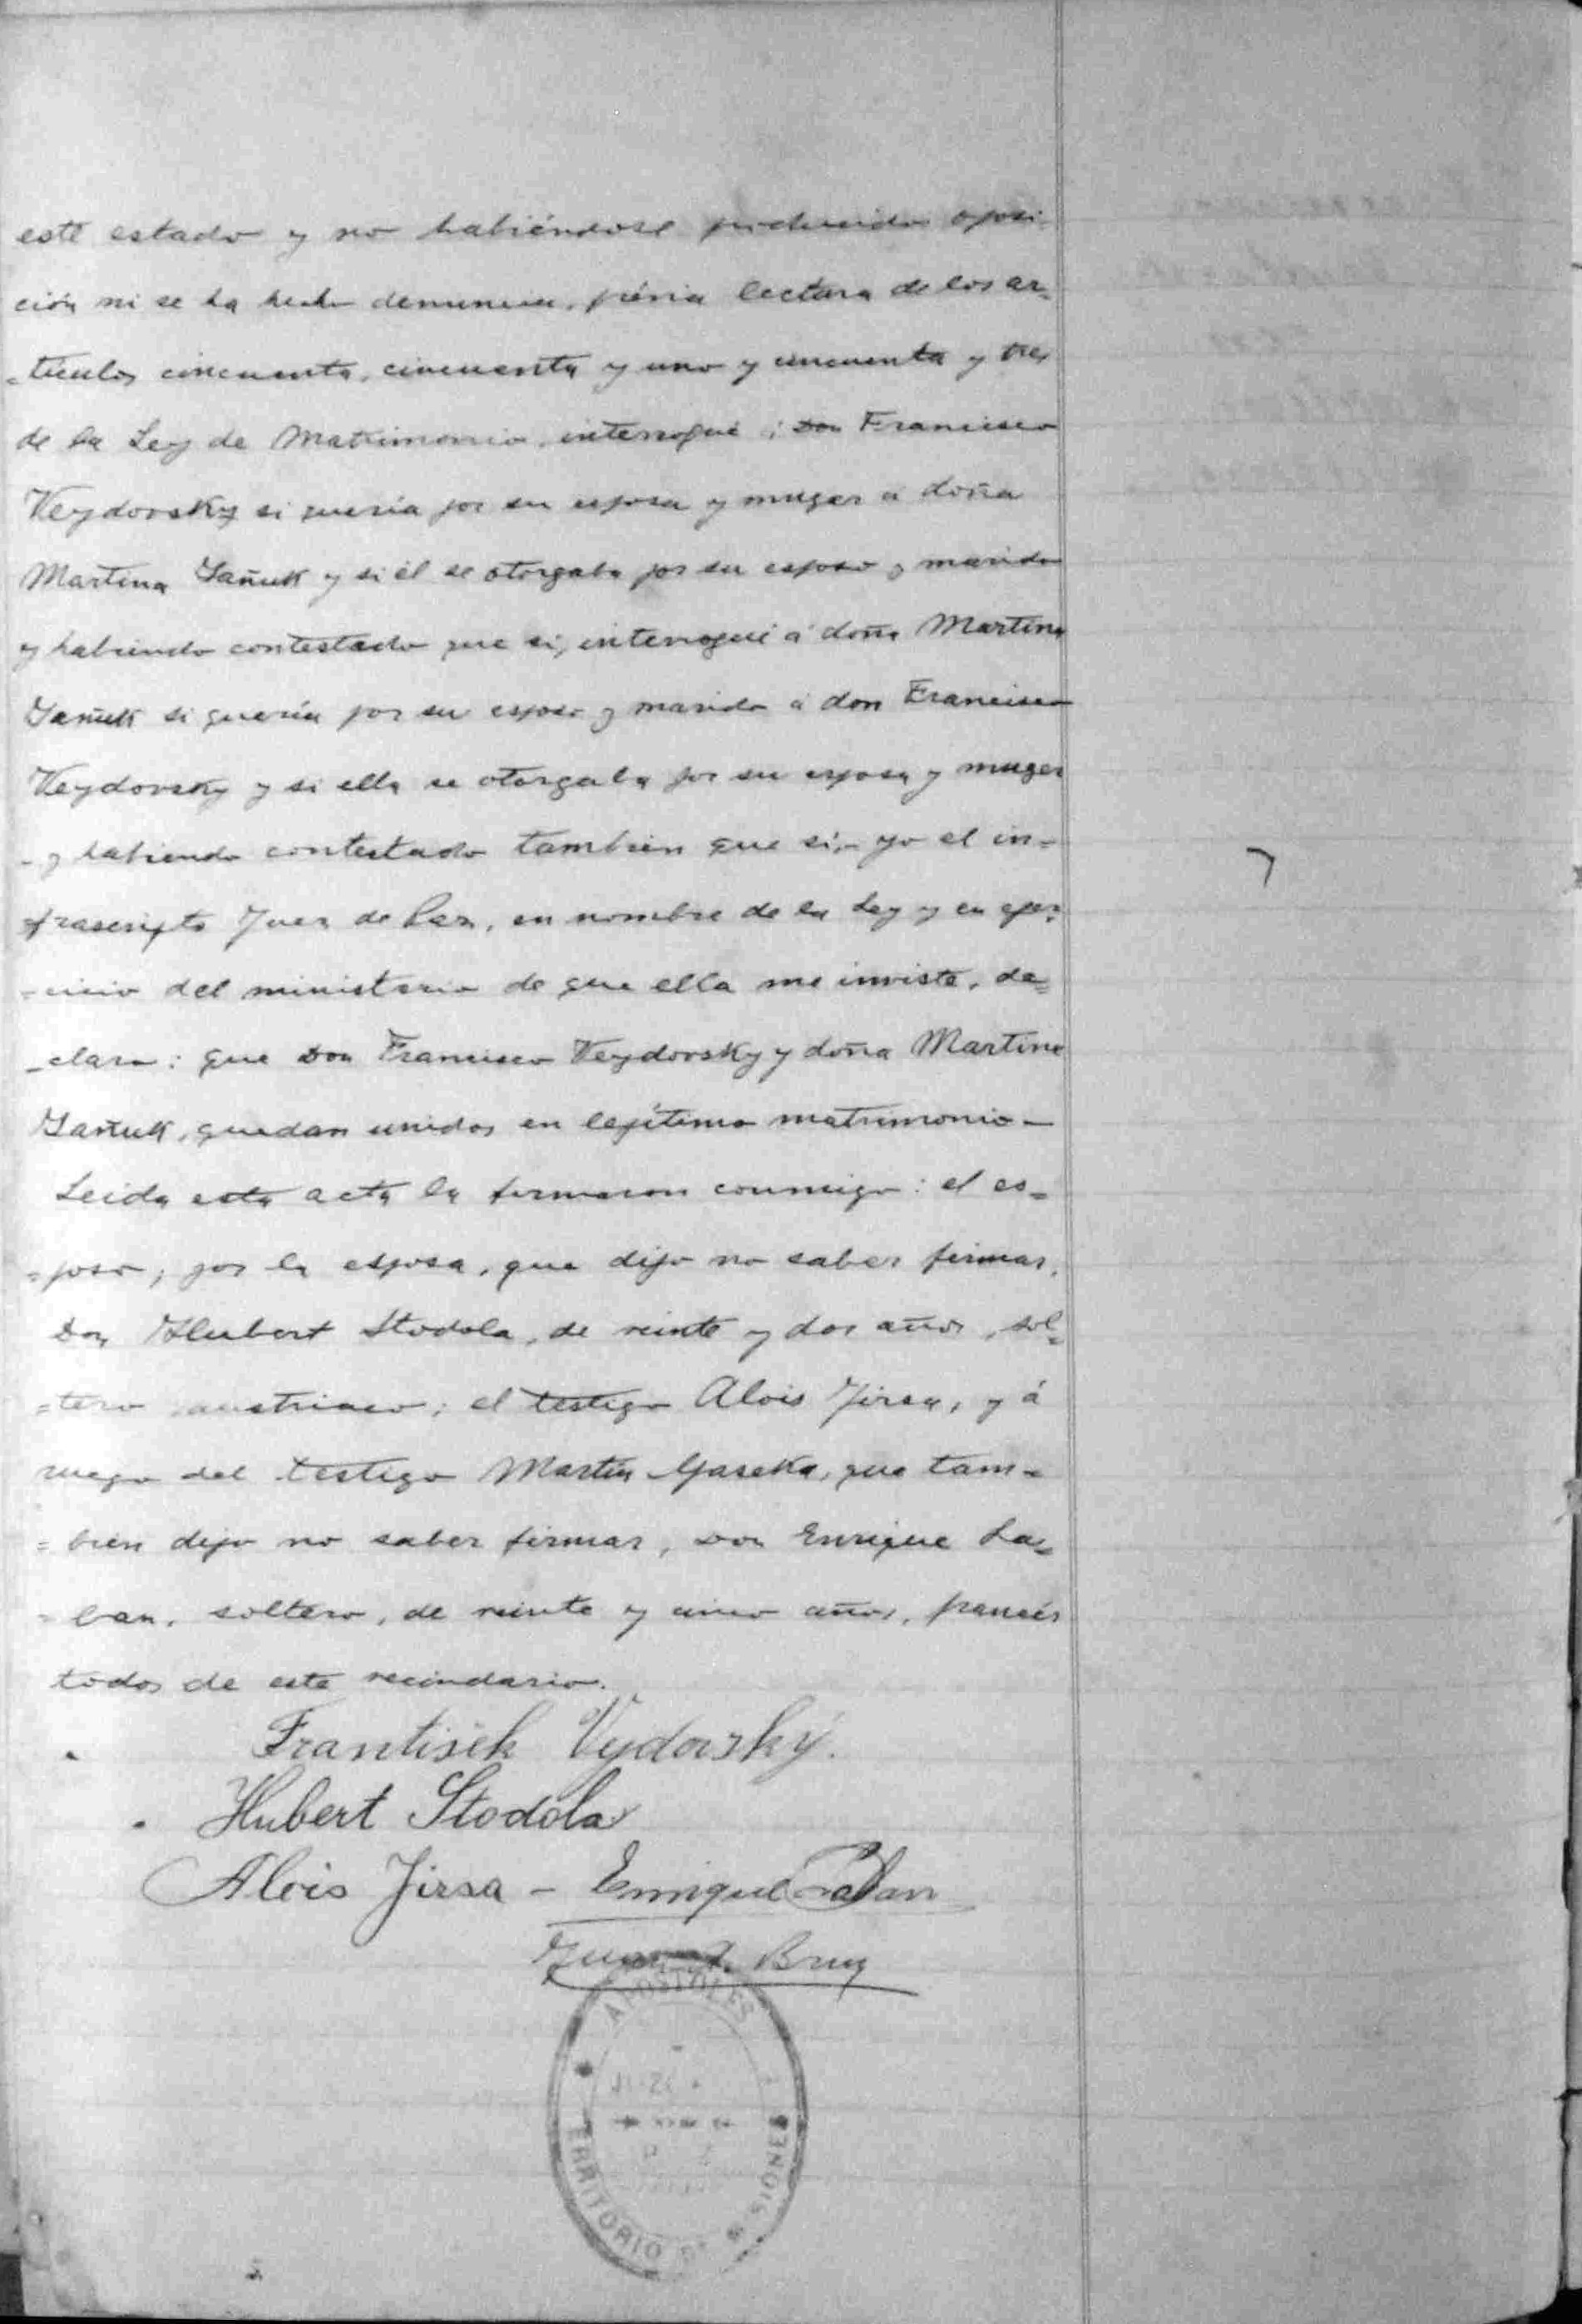 este estado y no habiéndose producido oposi-
ción ni se ha hecho denuncia, prévia lectura de los ar-
=tículos cincuenta, cincuenta y uno y cincuenta y tres
de la Ley de Matrimonio, interrogué á Don Francisco
Veydovsky si quería por su esposa y muger á doña
Martina Yañuk y si él se otorgaba por su esposo y marido
y habiendo contestado que si, interrogué á doña Martina
Yañuk si quería por su esposo y marido á don Francisco
Veydovsky y si ella se otorgaba por su esposa y muger
- y habiendo contestado tambien que sí,- yo el in=
frascripto Juez de Paz, en nombre de la Ley y en ejer=
=cicio del ministerio de que ella me inviste, de=
_claro: que Don Francisco Veydovsky y doña Martina
Yañuk, quedan unidos en legítimo matrimonio -
Leida esta acta la firmaron conmigo: el es=
=poso; por la esposa, que dijo no saber firmar,
Don Hubert Stodola, de veinte y dos años, sol=
=tero austriaco; el testigo Alois Jirsa, y á
ruego del testigo Martin que tam=
=bien dijo no saber firmar, Don Enrique La=
=ban, soltero, de veinte y cinco años, francés
todos de este vecindario.
František Vydovský.
Hubert Stodola
Alois Jirsa - Enrique Laban
Juan
APOSTOLES
TERRITORIO DE MISIONES